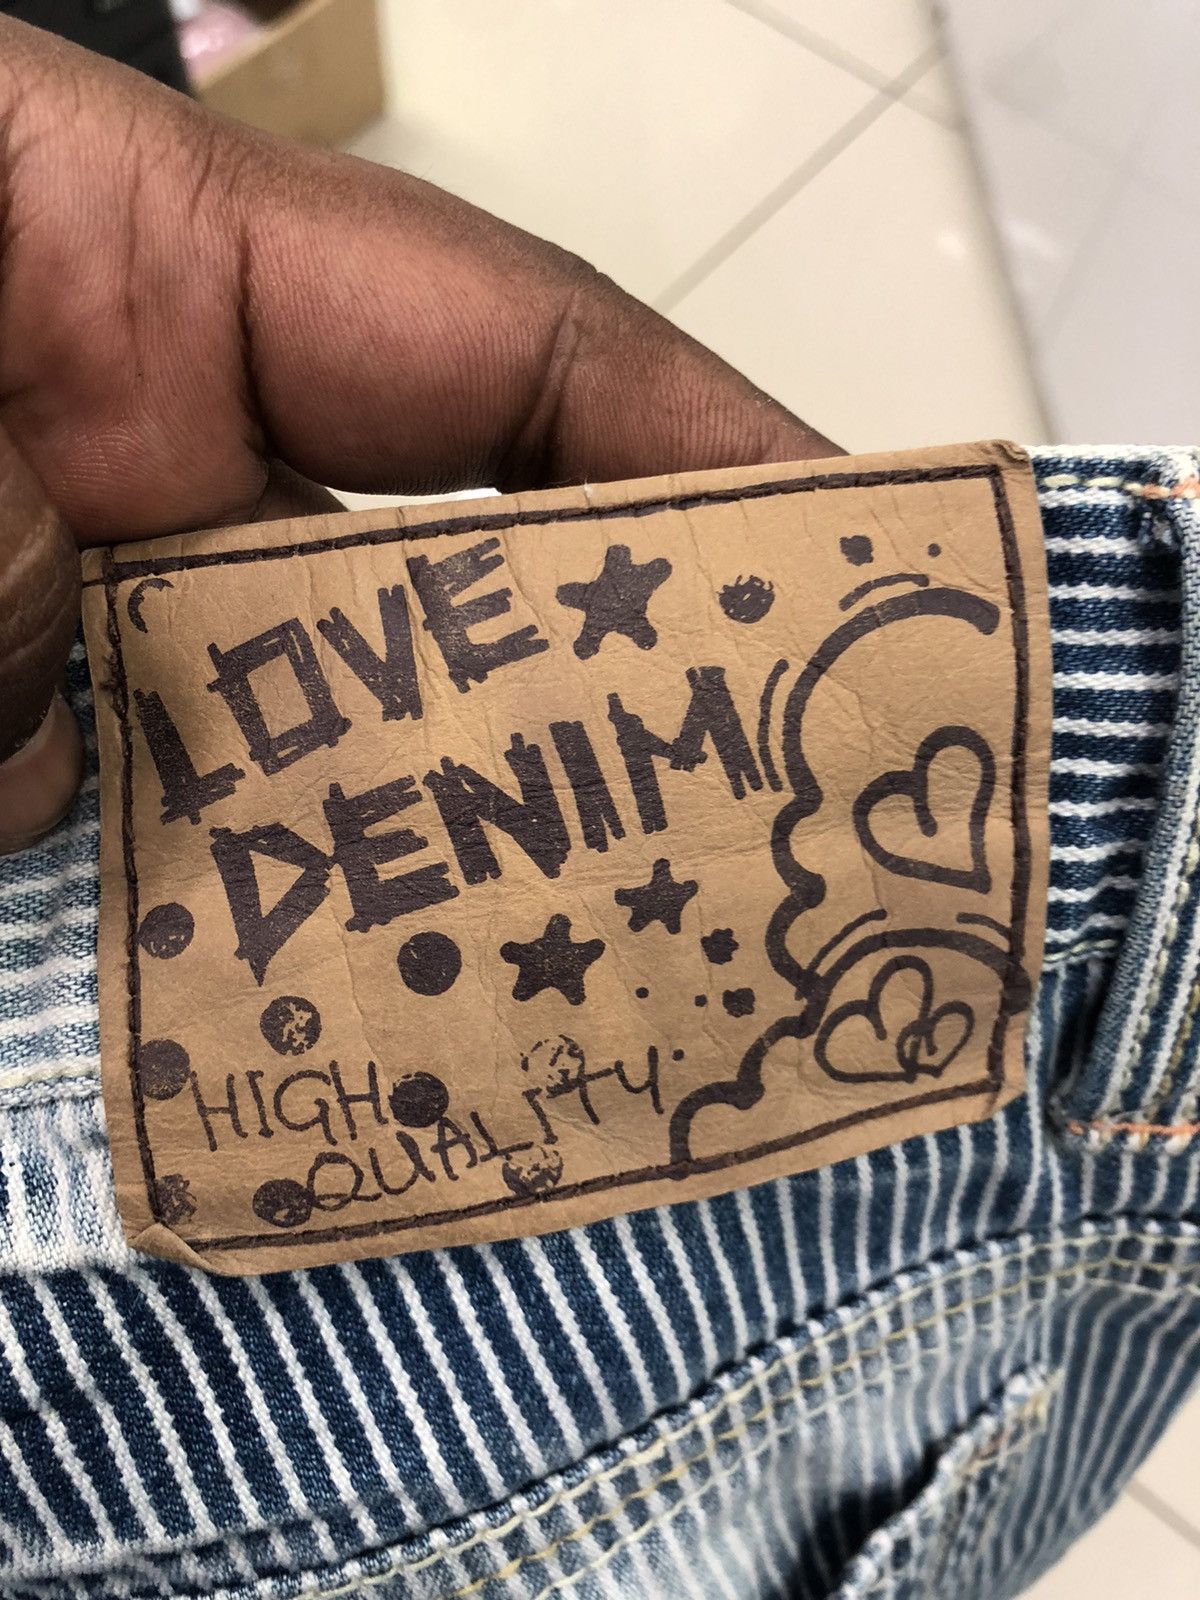 LOVE
DENIM
HIGH
QUALITY